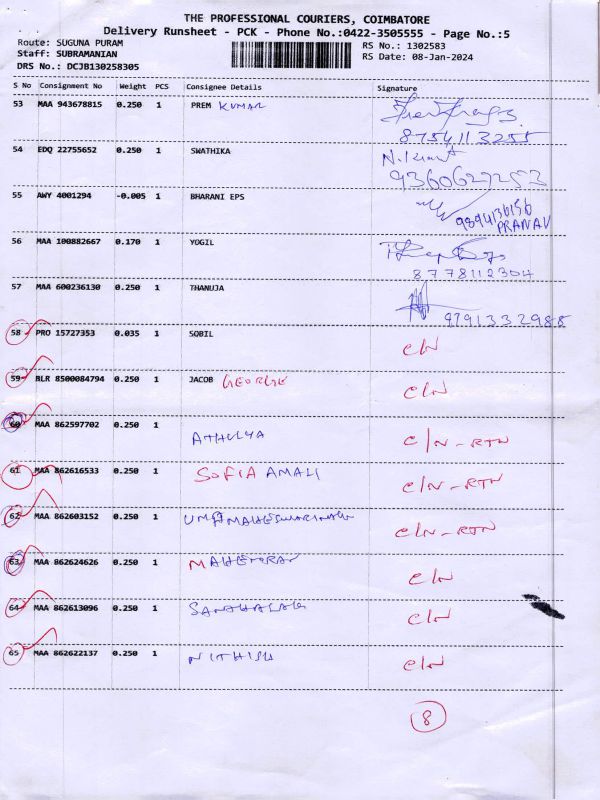 THE PROFESSIONAL COURIERS, COIMBATORE
Delivery Runsheet - PCK - Phone No.:0422-3505555 - Page No.:5
Route: SUGUNA PURAM
Staff: SUBRAMANIAN
DRS No.: DCJB130258305
RS No.: 1302583
RS Date: 08-Jan-2024
S No Consignment No Weight PCS Consignee Details Signature
53 MAA 943678815 0.250 1 PREM KUMAR
8754113255
54 EDQ 22755652 0.250 1 SWATHIKA
9360627253
55 AWY 4001294 -0.005 1 BHARANI EPS
9894136156
PRANAV
56 MAA 100882667 0.170 1 YOGIL
8778112304
57 MAA 600236130 0.250 1 THANUJA
9791332988
58 PRO 15727353 0.035 1 SOBIL C/N
59 BLR 8500084794 0.250 1 JACOB GEORGE C/N
60 MAA 862597702 0.250 1 ATHULYA C/N-RTN
61 MAA 862616533 0.250 1 SOFIA AMALI C/N-RTN
62 MAA 862603152 0.250 1 C/N-RTN
63 MAA 862624626 0.250 1 C/N
64 MAA 862613096 0.250 1 C/N
65 MAA 862622137 0.250 1 NITHISH C/N
8